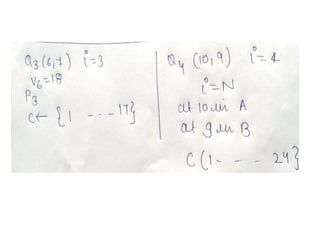 Q3 (6,7) i=3
V6=18
P3
C← {1 ---17}
Q4 (10,9) i=4
i=N
at 10 in A
at 9 in B
C (1- - - 24}